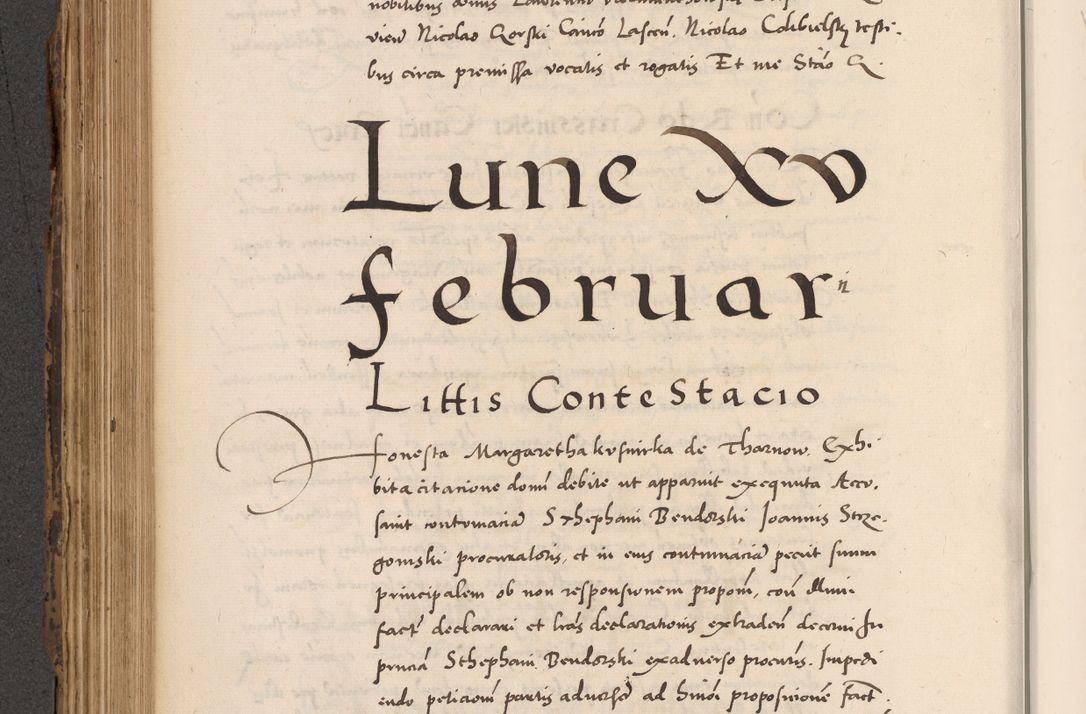 view Nicolao Gorski Canco Lascen. Nicolao Colibielsky testi-
bus circa premissa vocatis et rogatis Et me Stao G.
Lune XV
februarii
Littis Contestacio
Honesta Margaretha kusnirka de Tharnow. Exhi
bita citacione domi debite ut apparuit exequuta Accu.
sauit contumaciam Sthephani Bendorski Joannis Strze-
gomski procuratoris, et in eius contumaciam peciit suum
principalem ob non responsionem proponi, con
fact declarari et lras declarationis extraden decerni In
pncia Sthephani Bendorski exadverso procuris. Impedi
endo peticioni partis adverse ad hmoi proposicione fact.